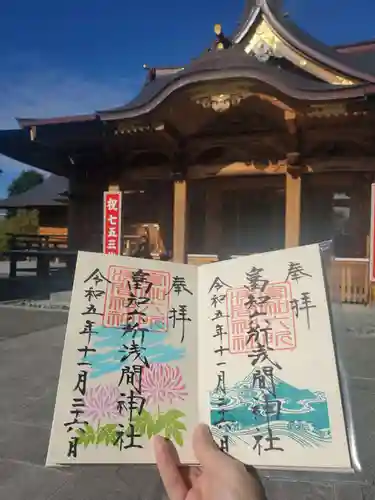 祝七五三
奉拝
富知六所浅間神社
令和五年十一月二十六日
奉拝
富知六所浅間神社
令和五年十一月二十六日